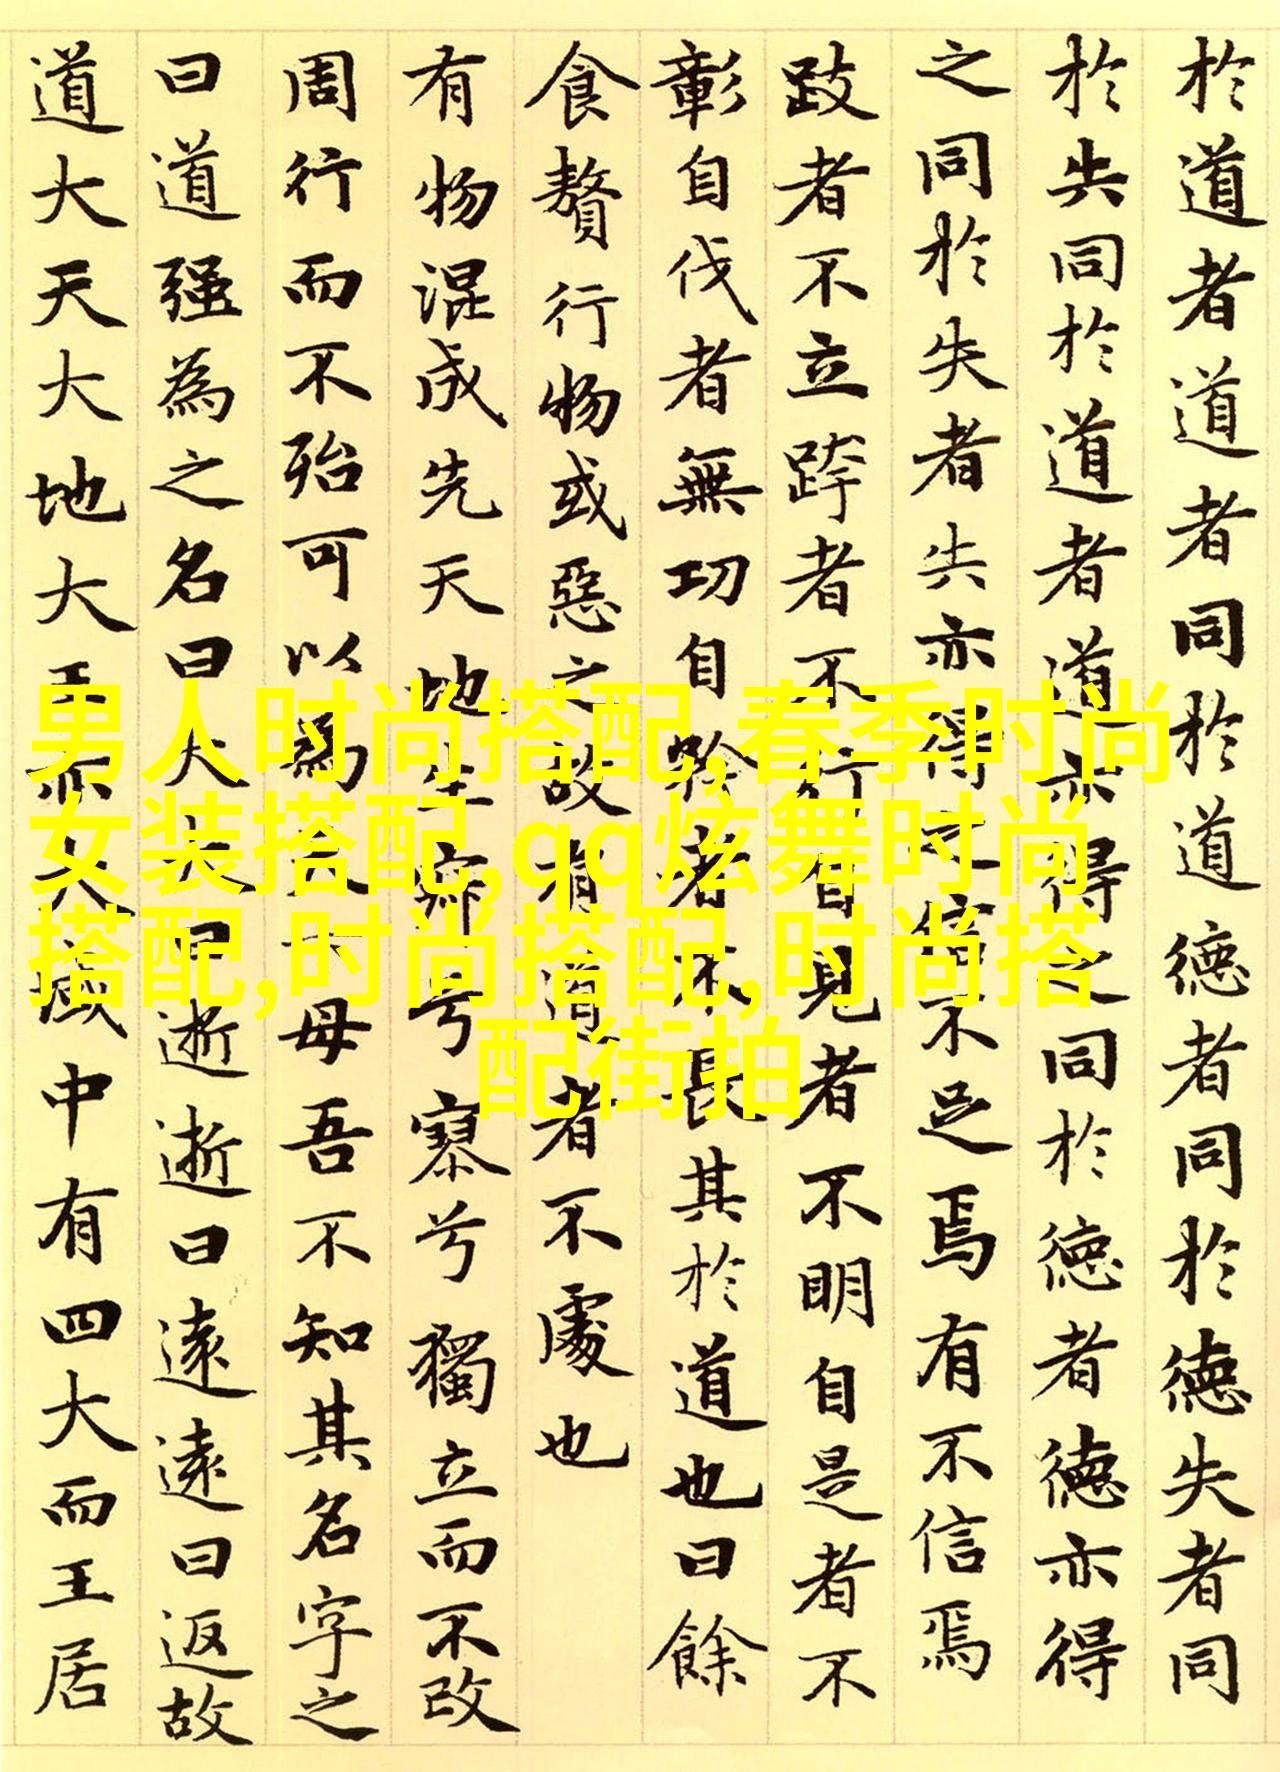 於道者道者同於道德者同於德失者同
於失同於道者道亦得之同於德者德亦得
之同於失者失亦得之信不足焉有不信焉
跂者不立跨者不行自見者不明自是者不
彰自伐者無功自矜者不長其於道也曰餘
食贅行物或惡之故有道者不處也
有物混成先天地生寂兮寥兮獨立而不改
周行而不殆可以為天下母吾不知其名字之
曰道强為之名曰大大曰逝逝曰遠遠曰返故
道大天大地大王亦大域中有四大而王居
男人时尚搭配,春季时尚
女装搭配,qq炫舞时尚
搭配,时尚搭配,时尚搭
配街拍